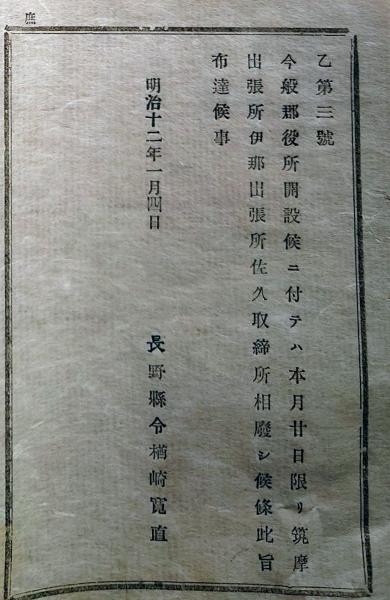 乙第三號
今般郡役所開設候ニ付テハ本月廿日限リ筑摩
出張所伊那出張所佐久取締所相廢シ候條此旨
布達候事
明治十二年一月四日
長野縣令楢崎寬直
庶